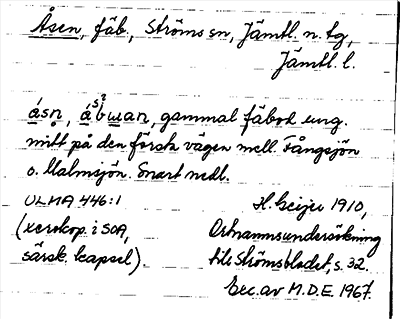 Åsen, fäb., Ströms sn, Jämtl. n. tg,
Jämtl. l.
åsn̥, åsbɯan, gammal fäbod ung.
mitt på den forsta vägen mell. Fångsjön
o. Malmsjön. Snart nedl.
ULMA 446:1 H. Geijer 1910,
(xerokop. i SOA, Ortnamnsundersökning
särsk. kapsel). till Strömsbladet, s. 32.
Exc. av M.D.E. 1967.